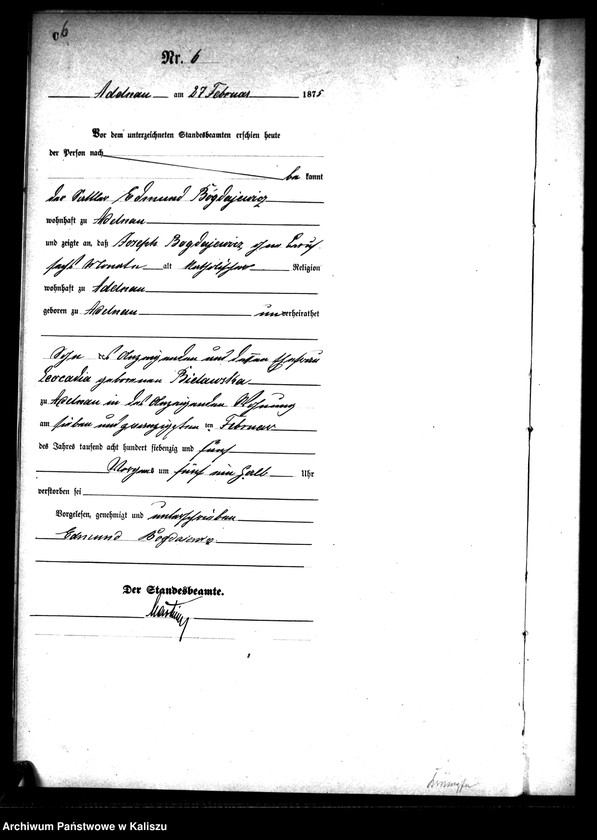 6
Nr. 6
Adelnau am 27 Februar 1875
Vor dem unterzeichneten Standesbeamten erschien heute
der Person nach
bekannt
der Sattler Edmund Bogdajewicz
wohnhaft zu Adelnau
und zeigte an, daß Joseph Bogdajewicz, ohne Beruf
sechs Monate alt katholischer Religion
wohnhaft zu Adelnau
geboren zu Adelnau unverheirathet
Sohn des Anzeigenden und dessen Ehefrau
Leocadia geborenen Bielawska
zu Adelnau in des Anzeigenden Wohnung
am sieben und zwanzigsten ten Februar
des Jahres tausend acht hundert siebenzig und fünf
Morgens um fünf ein halb Uhr
verstorben sei
Vorgelesen, genehmigt und unterschrieben
Edmund Bogdajewicz
Der Standesbeamte.
Archiwum Państwowe w Kaliszu